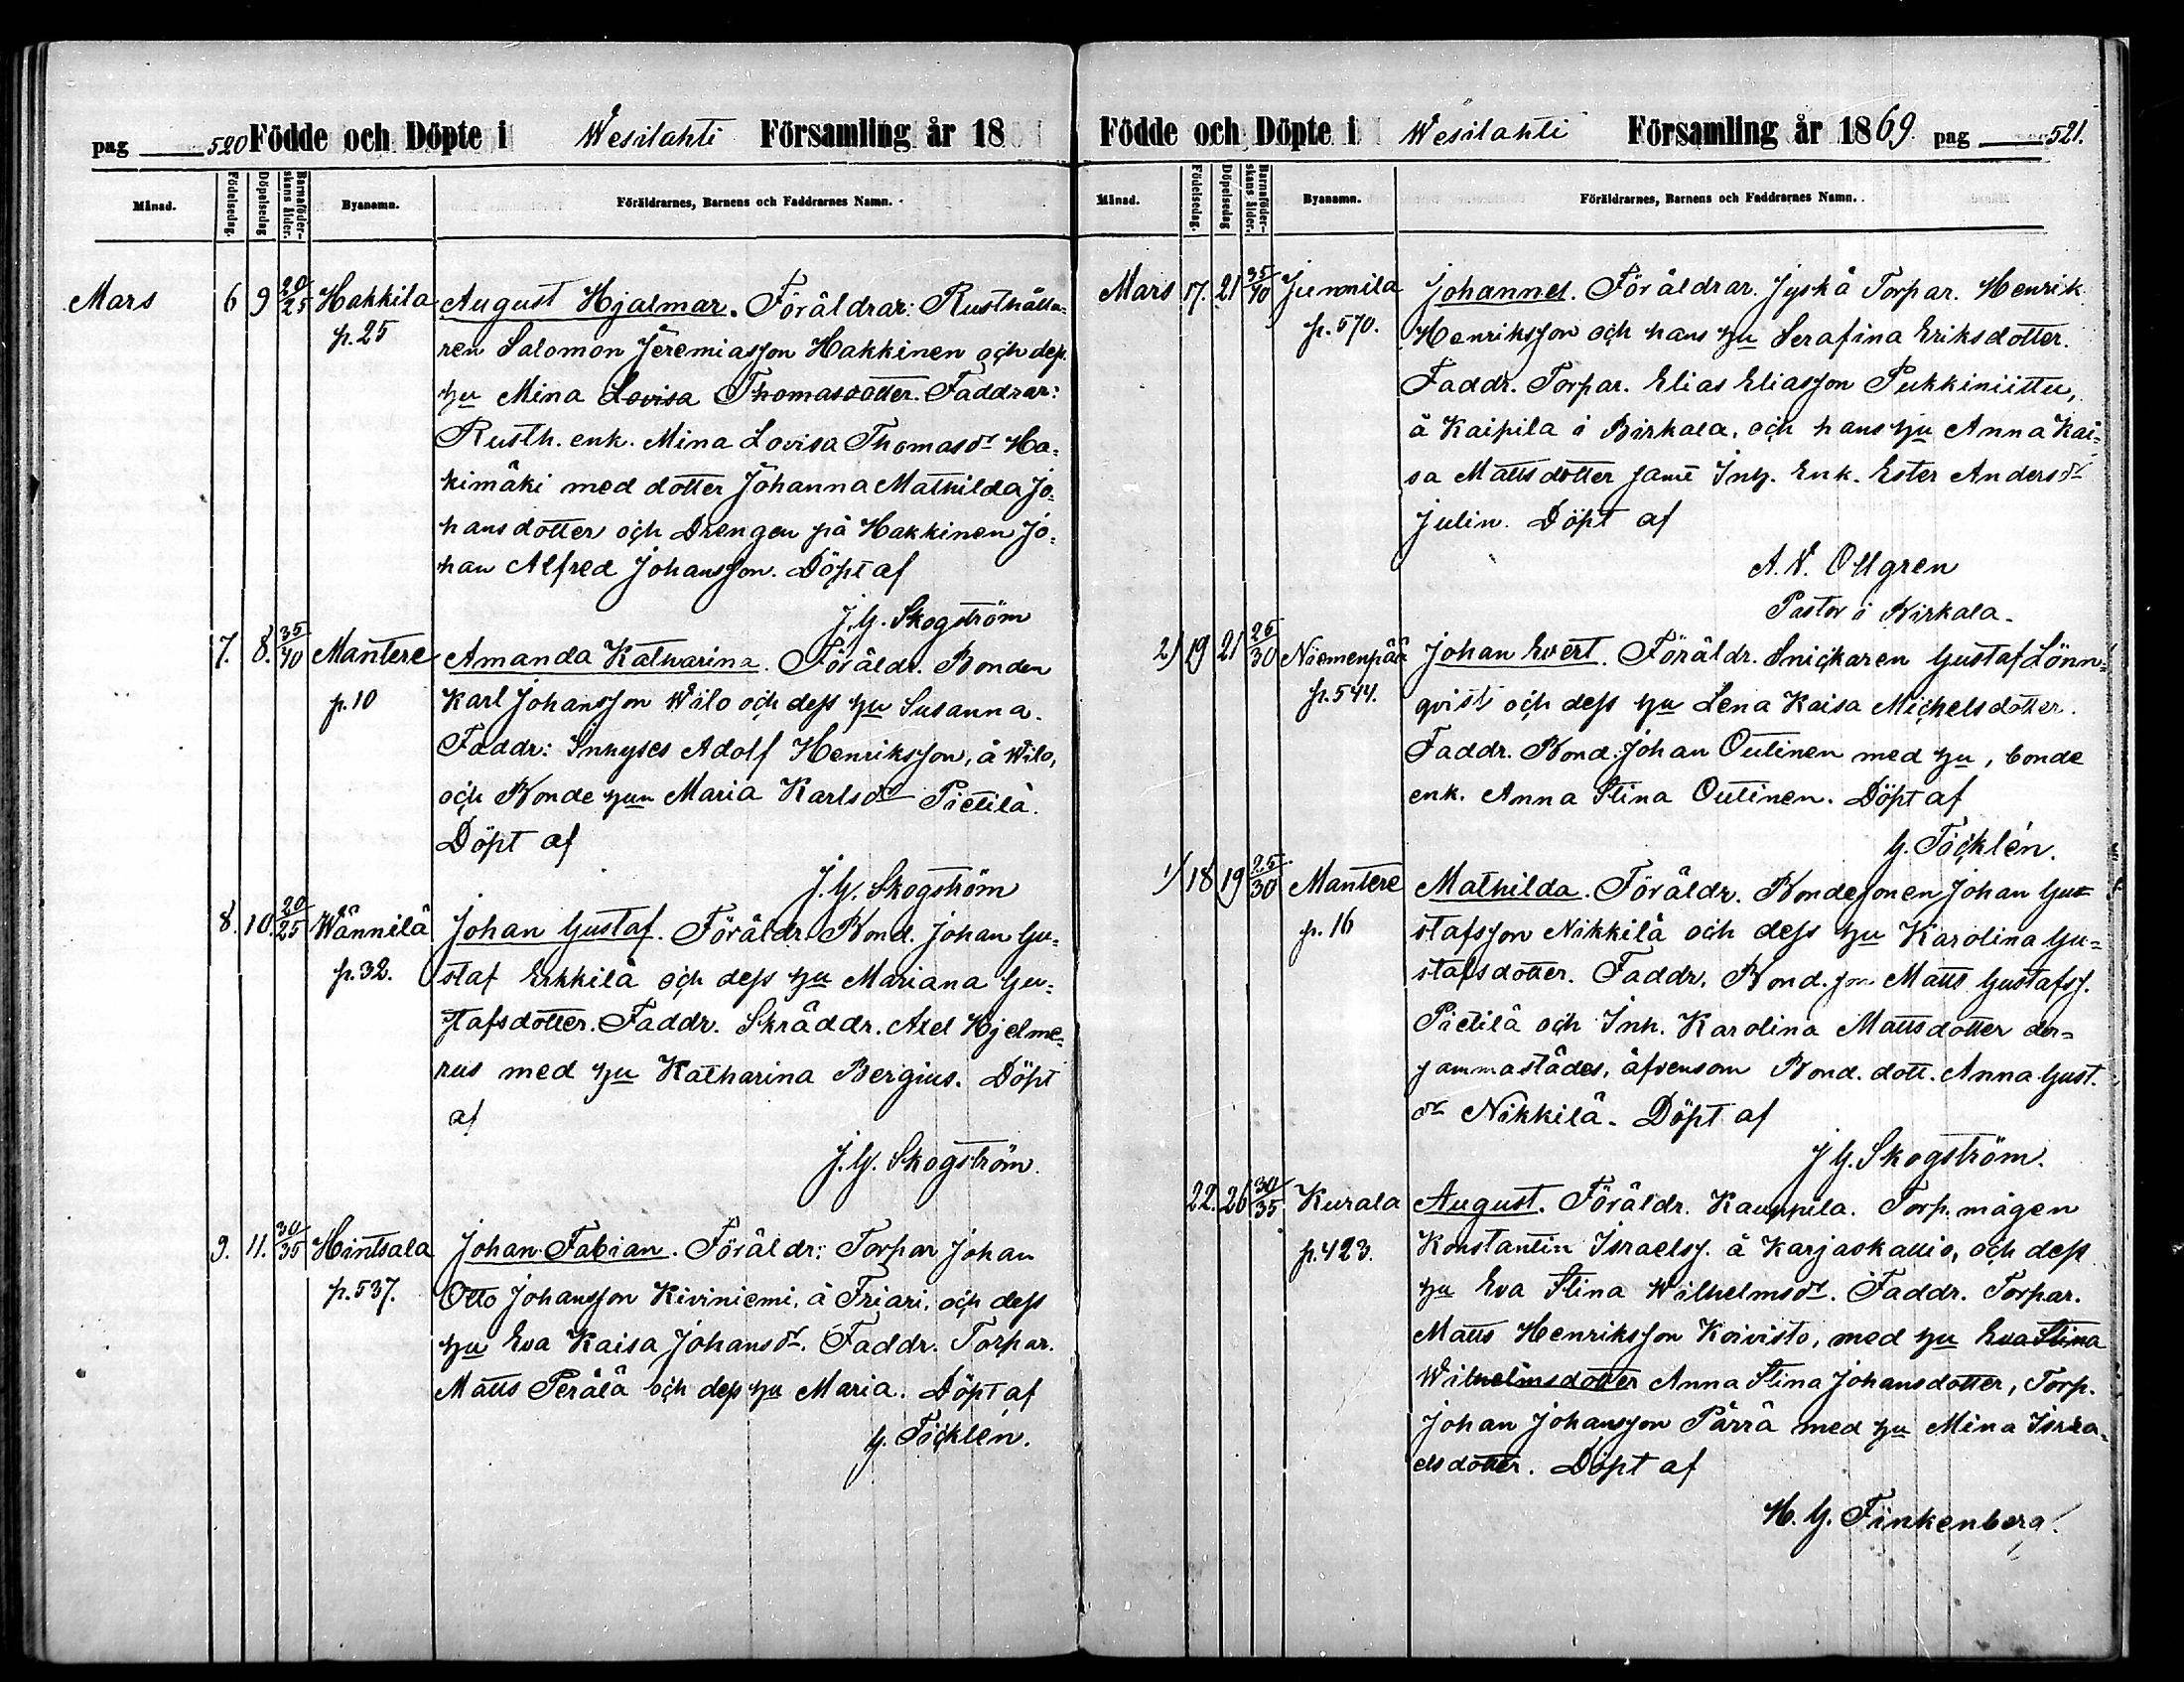 pag 520 Födde och Döpte i Wesilahti Församling år 18
Månad. Födelsedag. Döpelsedag Barnaföderskans ålder. Byanamn. Föräldrarnes, Barnens och Faddrarnes Namn.
Mars 6 9 20/25 Hakkila August Hjalmar. Föräldrar: Rusthålla=
p. 25 ren Salomon Jeremiasson Hakkinen och dess
hu Mina Lovisa Thomasdotter. Faddrar:
Rusth. enk. Mina Lovisa Thomasdr Ha=
kimäki med dotter Johanna Mathilda Jo=
hansdotter och Drengen på Hakkinen Jo=
han Alfred Johansson. Döpt af
J. G. Skogström
7. 8. 35/40 Mantere Amanda Katharina. Föräldr. Bonden
p. 10 Karl Johansson Wilo och dess hu Susanna.
Faddr: Inhyses Adolf Henriksson, å Wilo,
och Bonde hun Maria Karlsdr Pietilä.
Döpt af
J. G. Skogström
8. 10. 20/25 Wännilä Johan Gustaf. Föräldr. Bond. Johan Gu=
p. 32. staf Erkkilä och dess hu Mariana Gu=
stafsdotter. Faddr. Skräddr. Axel Hjelme=
rus med hu Katharina Bergius. Döpt
af
J. G. Skogström.
9. 11. 30/35 Hintsala Johan Fabian. Föräldr: Torpar Johan
p. 537. Otto Johansson Kiviniemi, å Friari, och dess
hu Eva Kaisa Johansdr. Faddr. Torpar.
Matts Perälä och dess hu Maria. Döpt af
G. Töcklén.
Födde och Döpte i Wesilahti Församling år 1869. pag 521.
Månad. Födelsedag. Döpelsedag Barnaföderskans ålder. Byanamn. Föräldrarnes, Barnens och Faddrarnes Namn.
Mars 17. 21 35/40 Junnila Johannes. Föräldrar. Jyskä Torpar. Henrik
p. 570. Henriksson och hans hu Serafina Eriksdotter.
Faddr. Torpar. Elias Eliasson Pukkiniittu,
å Kaipila i Birkala, och hans hu Anna Kai=
sa Mattsdotter samt Inh. Enk. Ester Andersdr
Julin. Döpt af
A. V. Ollgren
Pastor i Birkala.
2) 19 21 26/30 Niemenpää Johan Evert. Föräldr. Snickaren Gustaf Lönn=
p. 544. qvist och dess hu Lena Kaisa Michelsdotter.
Faddr. Bond. Johan Outinen med hu, bonde
enk. Anna Stina Outinen. Döpt af
G. Töcklén.
1) 18 19 25/30 Mantere Mathilda. Föräldr. Bondesonen Johan Gu=
p. 16 stafsson Nikkilä och dess hu Karolina Gu=
stafsdotter. Faddr. Bond. son Matts Gustafs.
Pietilä och Inh. Karolina Mattsdotter der=
sammastädes, äfvensom Bond. dott. Anna Gust.
dr Nikkilä. Döpt af
J G. Skogström.
22. 26 30/35 Kurala August. Föräldr. Kauppila. Torp. mågen
p. 423. Konstantin Israelss. å Karjaskallio, och dess
hu Eva Stina Wilhelmsdr. Faddr. Torpar.
Matts Henriksson Koivisto, med hu Eva Stina
Wilhelmsdotter Anna Stina Johansdotter, Torp.
Johan Johansson Pärrä med hu Mina Isra=
elsdotter. Döpt af
H. G. Finkenberg.